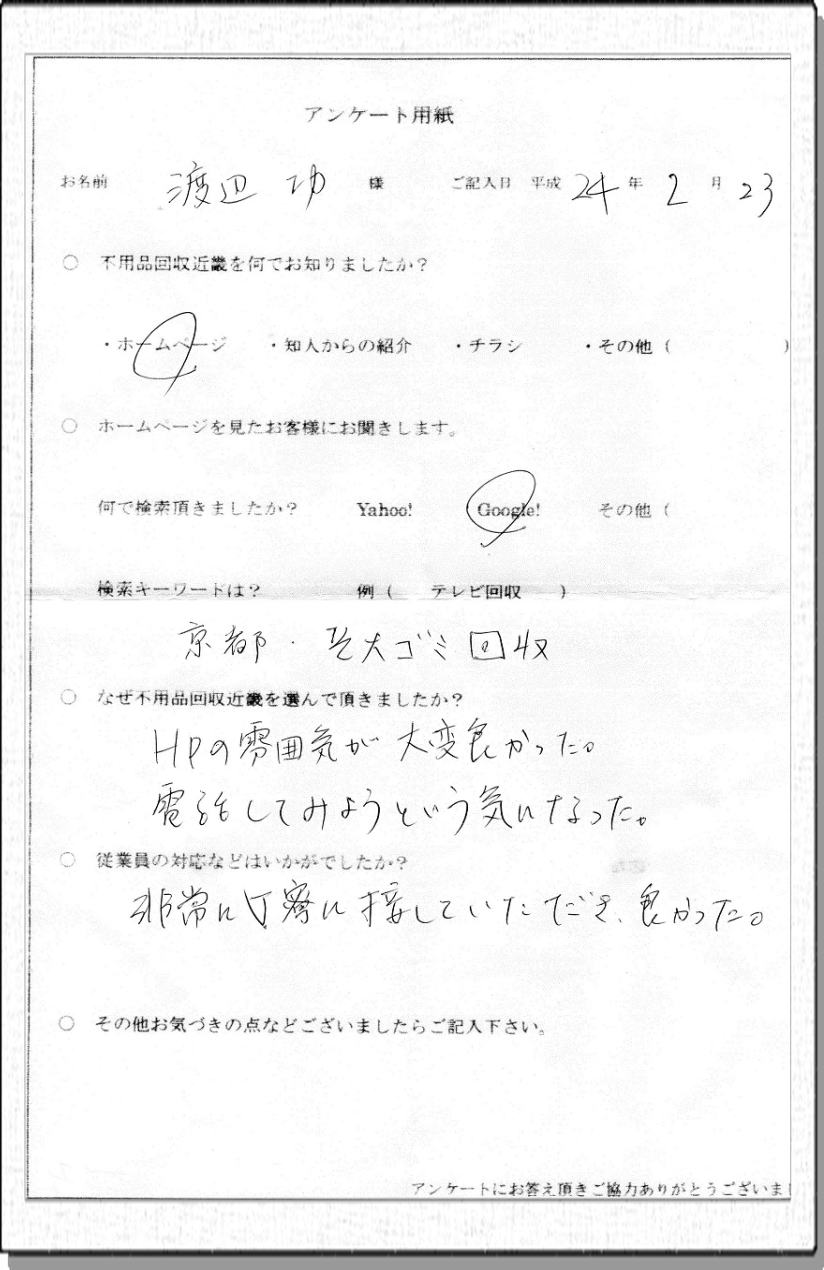 アンケート用紙
お名前 渡辺 功 様 ご記入日 平成 24 年 2 月 23
○ 不用品回収近畿を何でお知りましたか？
・ホームページ ・知人からの紹介 ・チラシ ・その他（ ）
○ ホームページを見たお客様にお聞きします。
何で検索頂きましたか？ Yahoo! Google! その他（
検索キーワードは？ 例（ テレビ回収 ）
京都・粗大ゴミ回収
○ なぜ不用品回収近畿を選んで頂きましたか？
HPの雰囲気が大変良かった。
電話してみようという気になった。
○ 従業員の対応などはいかがでしたか？
非常に丁寧に接していただき、良かった。
○ その他お気づきの点などございましたらご記入下さい。
アンケートにお答え頂きご協力ありがとうございま